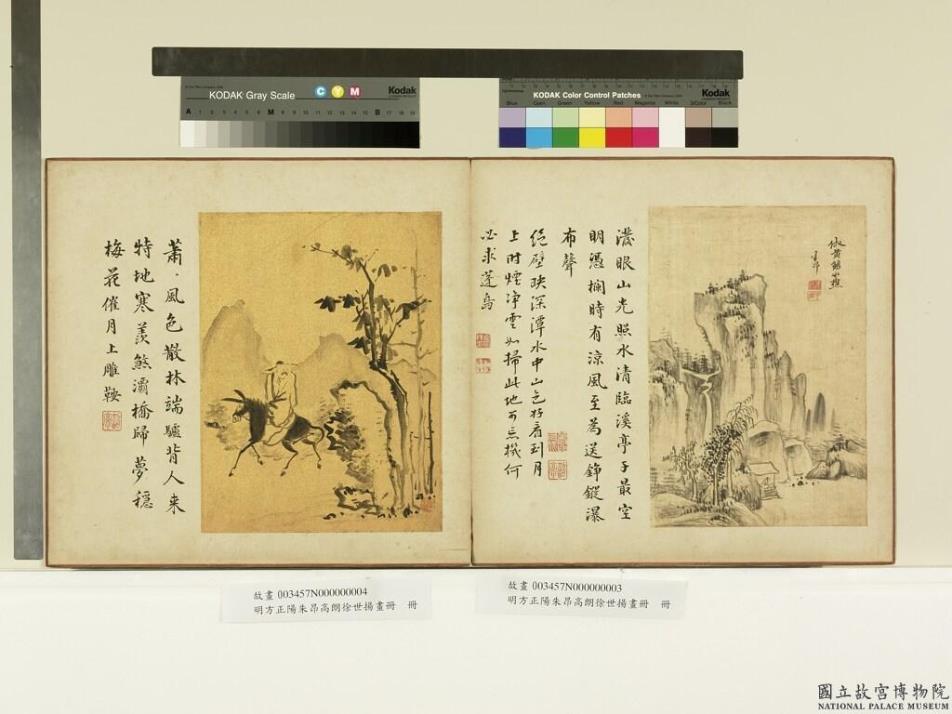 KODAK Gray Scale
C Y M
Kodak
A 1 2 3 4 5 6 M 8 9 10 11 12 13 14 15 B 17 18 19
KODAK Color Control Patches
Kodak
Blue Cyan Green Yellow Red Magenta White 3/Color Black
倣黃鶴山樵
朱昂
濃眼山光照水清臨溪亭子最空
明憑欄時有涼風至為送錚鏦瀑
布聲
絕壁映深潭水中山色好看到月
上時煙淨雲如掃此地可忘機何
必求蓬島
蕭〻風色散林端驢背人来
特地寒羨煞灞橋歸夢穩
梅花催月上雕鞍
故畫 003457N000000004
明方正陽朱昂高朗徐世揚畫冊 冊
故畫 003457N000000003
明方正陽朱昂高朗徐世揚畫冊 冊
國立故宮博物院
NATIONAL PALACE MUSEUM